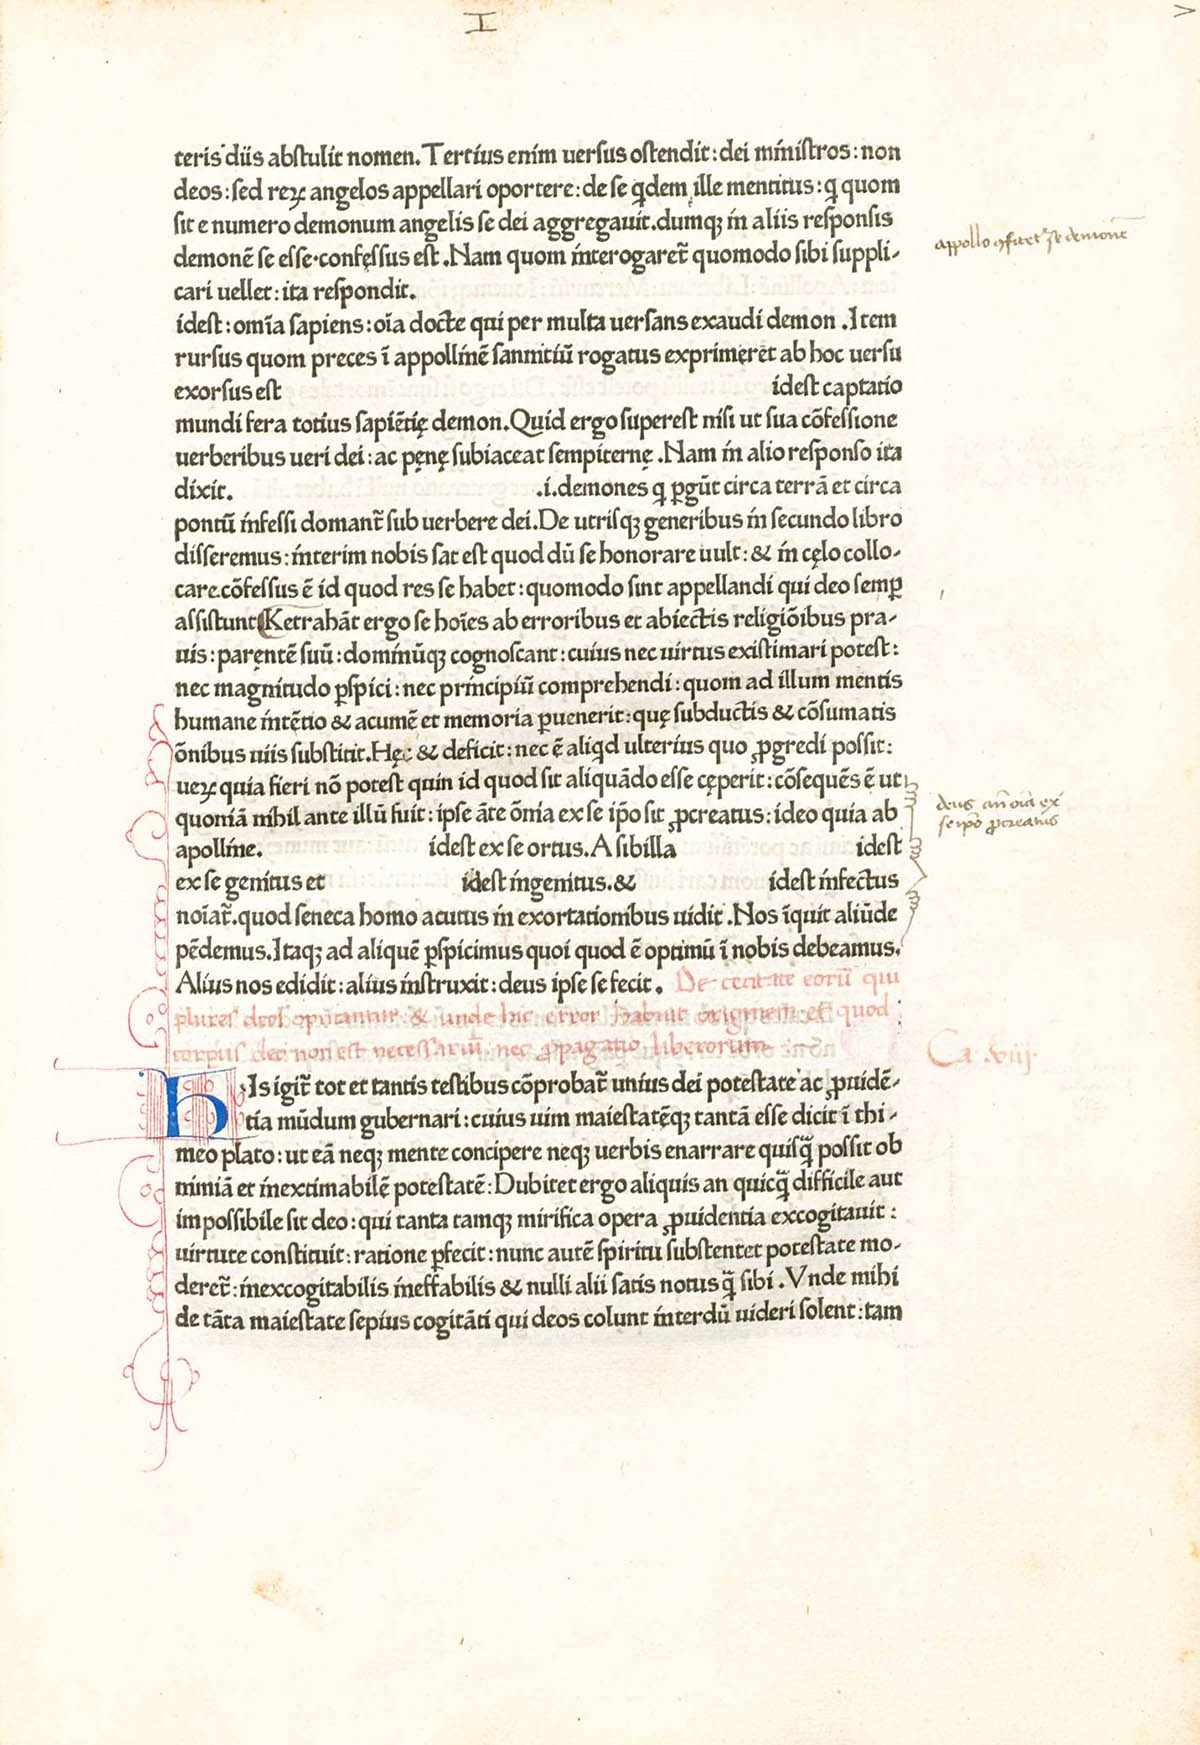 I
teris diis abstulit nomen. Tertius enim uersus ostendit: dei ministros: non
deos: sed reꝝ angelos appellari oportere: de se qdem ille mentitus: ꝗ quom
sit e numero demonum angelis se dei aggregauit. dumqꝫ in aliis responsis
demonē se esse confessus est. Nam quom interogaret̃ quomodo sibi suppli-
cari uellet: ita respondit.
appollo ꝯfitet᷑ se demonē
idest: om̄ia sapiens: oīa docte qui per multa uersans exaudi demon. Item
rursus quom preces ī appollinē sannitiū rogatus exprimeret ab hoc uersu
exorsus est idest captatio
mundi fera totius sapiētię demon. Quid ergo superest nisi ut sua cōfessione
uerberibus ueri dei: ac pęnę subiaceat sempiternę. Nam in alio responso ita
dixit. .i. demones ꝗ ꝑgūt circa terrā et circa
pontū infessi domant̃ sub uerbere dei. De utrisqꝫ generibus in secundo libro
disseremus: interim nobis sat est quod dū se honorare uult: & in cęlo collo-
care. cōfessus ē id quod res se habet: quomodo sint appellandi qui deo semꝑ
assistunt Retrahāt ergo se hoīes ab erroribus et abiectis religiōibus pra-
uis: parentē suū: dominūqꝫ cognoscant: cuius nec uirtus existimari potest:
nec magnitudo ꝑspici: nec principiū comprehendi: quom ad illum mentis
humane intētio & acumē et memoria ꝑuenerit: quę subductis & cōsumatis
ōnibus uiis substitit. Hęc & deficit: nec ē aliqd ulterius quo ꝓgredi possit:
ueꝝ quia fieri nō potest quin id quod sit aliquādo esse cęperit: cōsequēs ē ut
quoniā nihil ante illū fuit: ipse āte ōnia ex se ip̄o sit ꝓcreatus: ideo quia ab
deus an̄ oīa ex
se ip̄o ꝓcreatus
apolline. idest ex se ortus. A sibilla idest
ex se genitus et idest ingenitus. & idest infectus
noīat̃. quod seneca homo acutus in exortationibus uidit. Nos īquit aliūde
pēdemus. Itaqꝫ ad aliquē ꝑspicimus quoi quod ē optimū ī nobis debeamus.
Alius nos edidit: alius instruxit: deus ipse se fecit. De cecitate eorū qui
plures deos opinantur & unde hic error habuit originem et quod
corpus deo non est necessariū nec ꝓpagatio liberorum
Ca. xiij.
HIs igit̃ tot et tantis testibus cōprobat̃ unius dei potestate ac ꝓuidē-
tia mūdum gubernari: cuius uim maiestatēqꝫ tantā esse dicit ī thi-
meo plato: ut eā neqꝫ mente concipere neqꝫ uerbis enarrare quisꝗ̄ possit ob
nimiā et inextimabilē potestatē: Dubitet ergo aliquis an quicꝗ̄ difficile aut
impossibile sit deo: qui tanta tamqꝫ mirifica opera ꝓuidentia excogitauit:
uirtute constituit: ratione ꝑfecit: nunc autē spiritu substentet potestate mo-
deret̃: inexcogitabilis ineffabilis & nulli alii satis notus ꝗ̄ sibi. Vnde mihi
de tāta maiestate sepius cogitāti qui deos colunt interdū uideri solent: tam